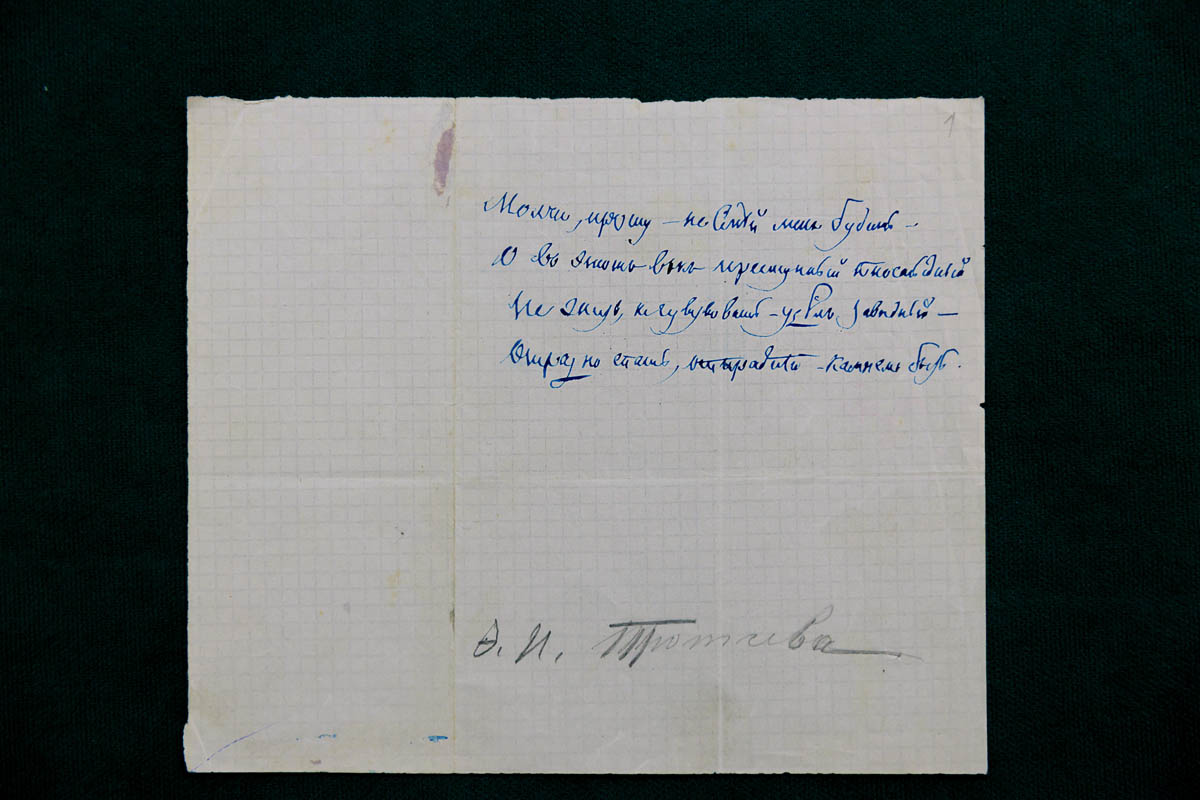 1
Молчи, прошу – не смѣй меня будить –
О въ этотъ вѣкъ преступный и постыдный
Не жить, не чувствовать – удѣлъ завидный –
Отрадно спать, отраднѣй – камнемъ быть.
Ѳ. И. Тютчева